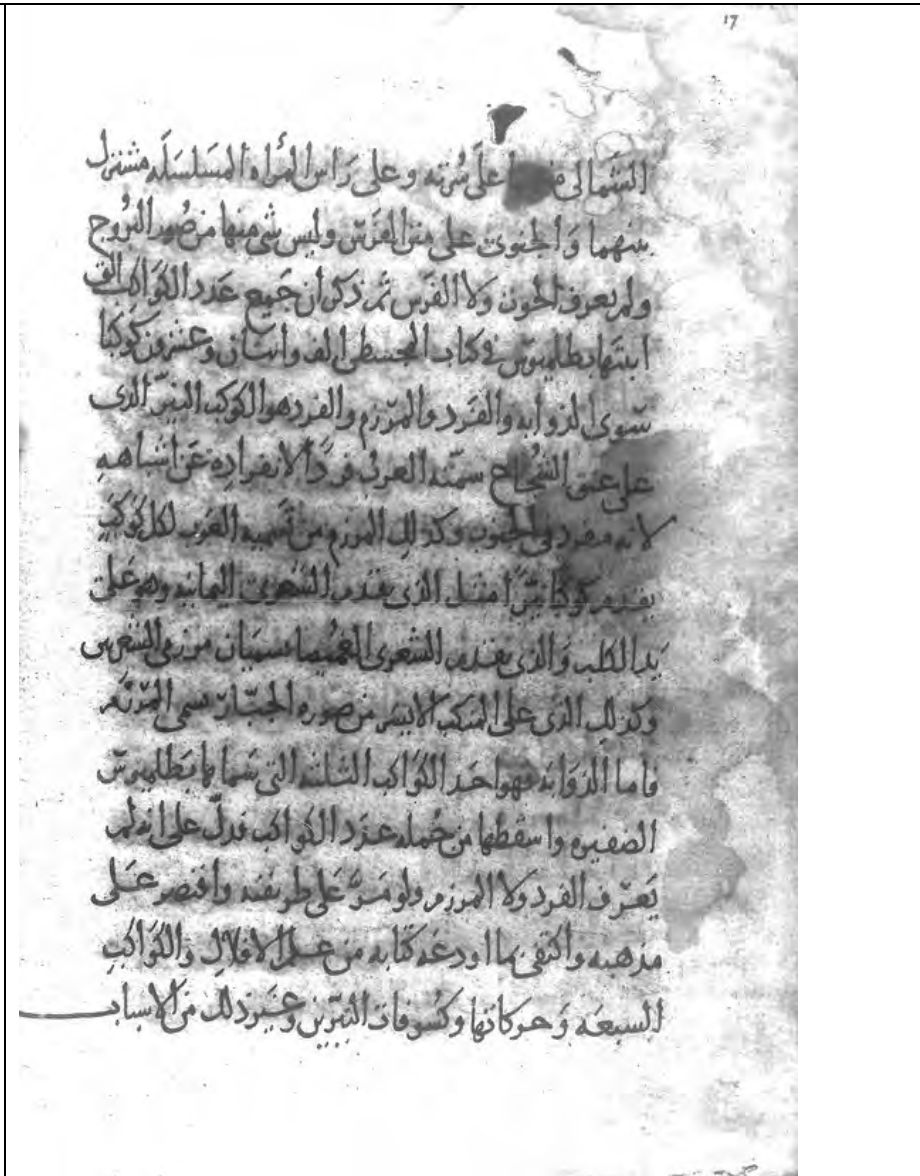 17
الشمالى على سرته وعلى راس المراه المسلسله مشترك
بينهما والجنوبى على متن الفرس وليس شى منها من صور البروج
ولم يعرف الحوت ولا الفرس ثم ذكر ان جميع عدد الكواكب التى
اثبتها بطلميوس فى كتاب المجسطى الف واثنان وعشرون كوكبا
سوى الذوابه والفرد والمرزم والفرد هو الكوكب النير الذى
على عنق الشجاع سمته العرب فردا لانفراده عن اشباهه
لانه منفرد فى الجنوب وكذلك المرزم من تسميه العرب لكل كوكب
يقدم كوكبا نيرا مثل الذى يقدم الشعرى اليمانيه وهو على
يد الكلب والذى يقدم الشعرى الغميصا يسميان مرزمى الشعريين
وكذلك الذى على المنكب الايسر من صوره الجبار يسمى المرزم
فاما الذوابه فهو احد الكواكب الثلثه التى سماها بطلميوس
الضفيره واسقطها من جمله عدد الكواكب فدل على انه لم
يعرف الفرد ولا المرزم ولو مر على طريقته واقتصر على
مذهبه واكتفى بما اودعه كتابه من علم الافلاك والكواكب
السبعه وحركاتها وكسوفات النيرين وغير ذلك من الاسباب